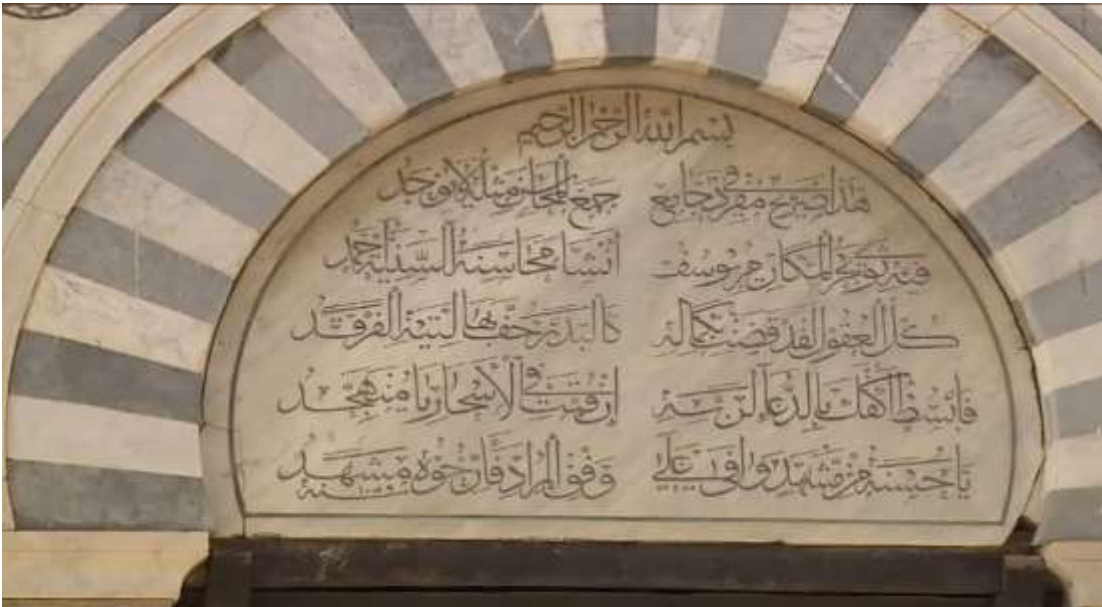 بسم الله الرحمن الرحيم
هذا ضريح مفرد في جامع جمع المحاسن مثله لا يوجد
فيه ثوى بحر المكارم يوسف أنشا محاسنه السنية أحمد
كل العقول لقد قضت بكماله
فابسط أكفك بالدعا لربه إن قمت في الأسحار يا متهجد
يا حسنه من مشهد وافى على وفق المراد فأرخوه مشهد
سنة